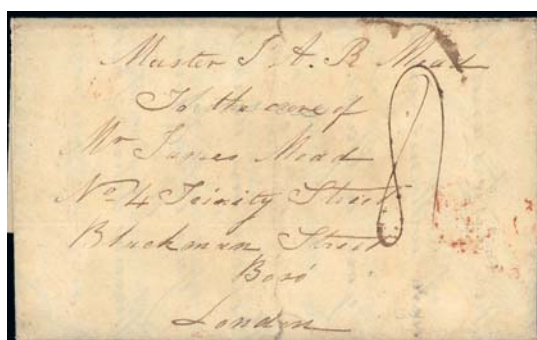 Master J A. R Mead
To the care of
Mr James Mead
No 4 Trinity Street
Blackman Street
Boro'
London
8